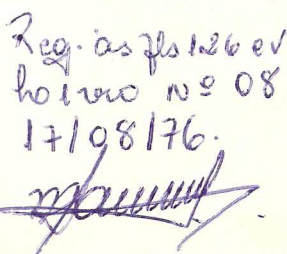 Reg. às fls 126 e v
ho livro Nº 08
17/08/76.